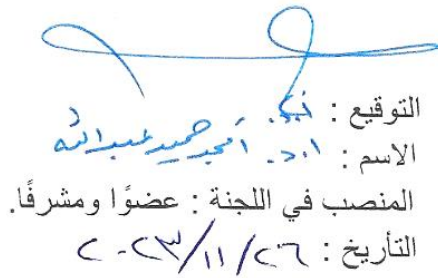 التوقيع : أ.د.
الاسم : أ.د. أمجد حميد عبدالله
المنصب في اللجنة : عضوًا ومشرفًا.
التأريخ : ٢٠٢٣/١١/٢٦